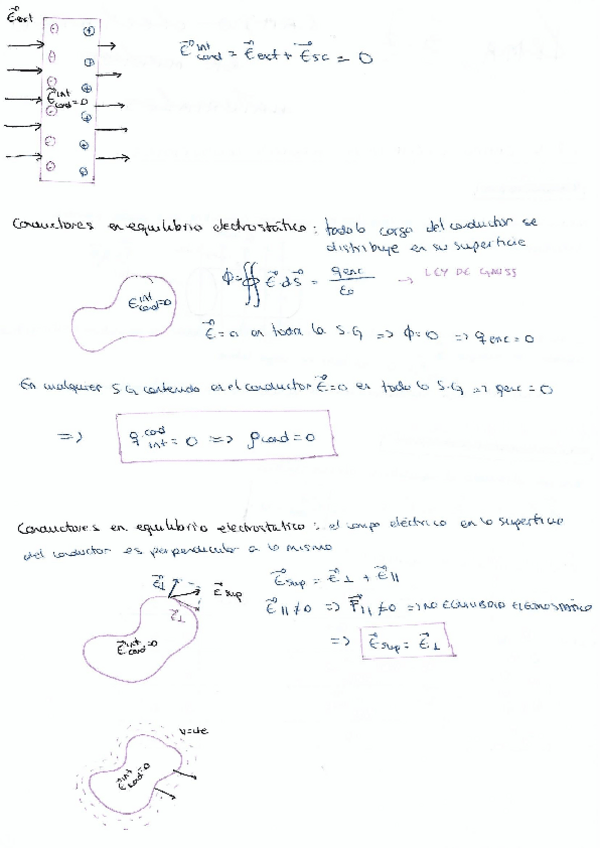 E⃗ext
E⃗ int cond = E⃗ext + E⃗sc = 0
E⃗ int cond = 0
Conductores en equilibrio electrostático : toda la carga del conductor se
distribuye en su superficie
E⃗ int cond = 0
Φ = ∯ E⃗ dS⃗ = qenc / ε0 → LEY DE GAUSS
E⃗ = 0 en toda la S.G => Φ = 0 => qenc = 0
En cualquier S.G contenida en el conductor E⃗ = 0 en toda la S.G => qenc = 0
=> q cond int = 0 => ρcond = 0
Conductores en equilibrio electrostatico : el campo eléctrico en la superficie
del conductor es perpendicular a la misma
E⃗⊥
E⃗sup
E⃗sup = E⃗⊥ + E⃗||
E⃗|| ≠ 0 => F⃗|| ≠ 0 => NO EQUILIBRIO ELECTROSTÁTICO
E⃗ int cond = 0
=> E⃗sup = E⃗⊥
V = cte
E⃗ int cond = 0